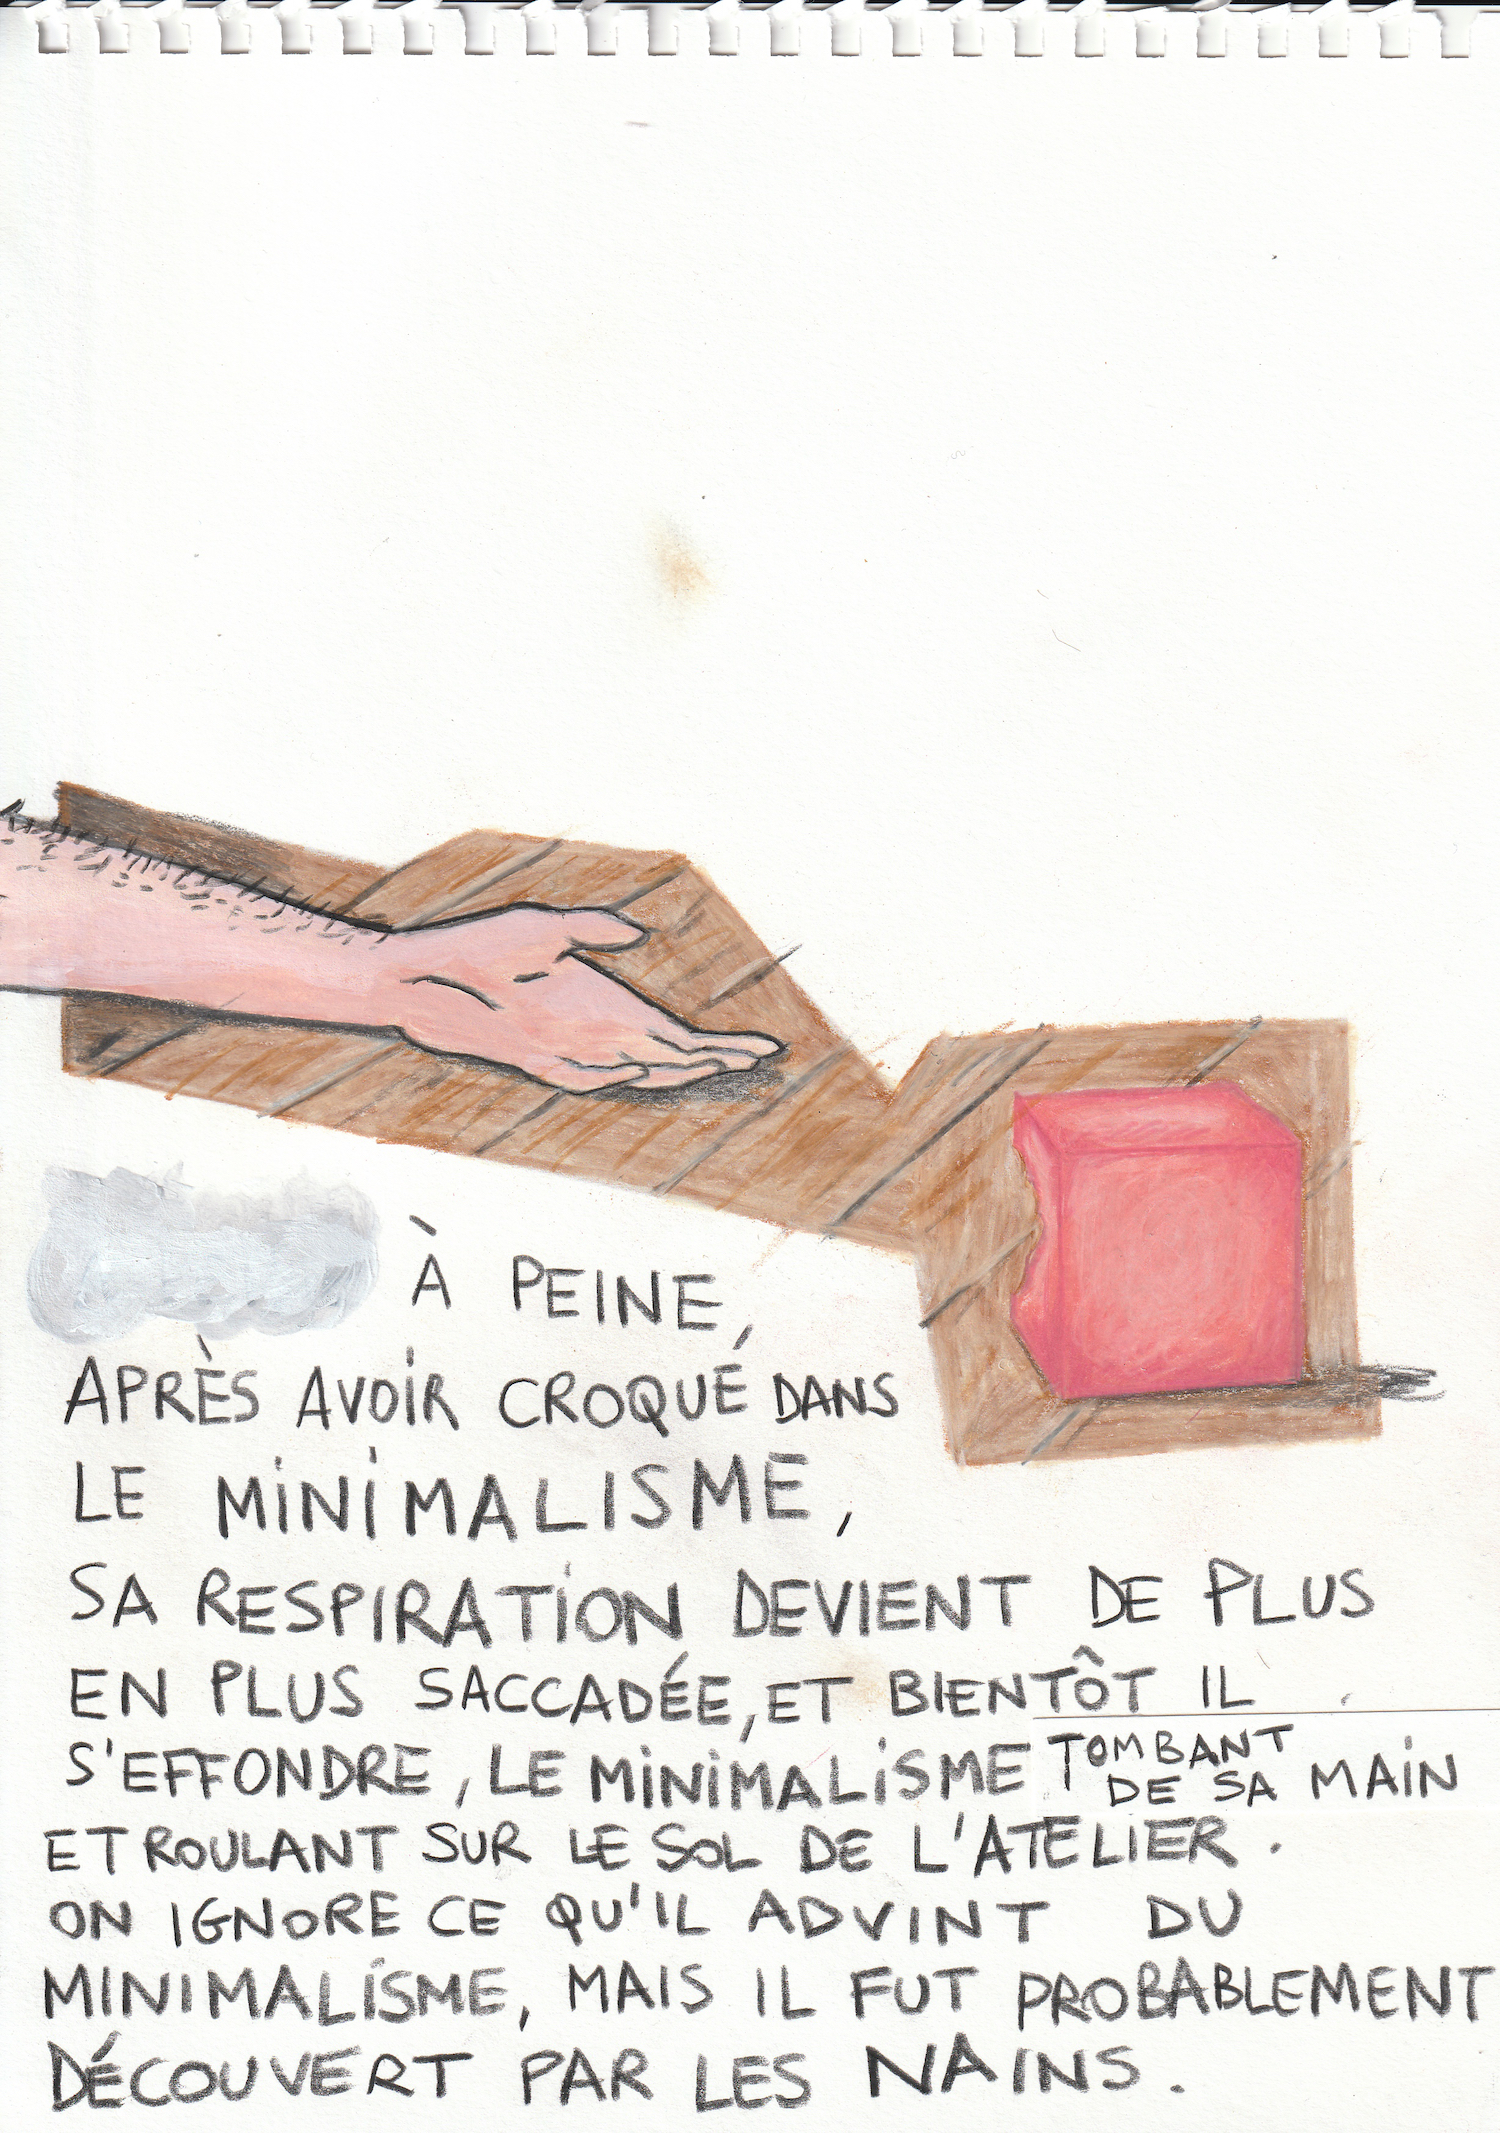 À PEINE,
APRÈS AVOIR CROQUÉ DANS
LE MINIMALISME,
SA RESPIRATION DEVIENT DE PLUS
EN PLUS SACCADÉE, ET BIENTÔT IL
S'EFFONDRE, LE MINIMALISME TOMBANT DE SA MAIN
ET ROULANT SUR LE SOL DE L'ATELIER.
ON IGNORE CE QU'IL ADVINT DU
MINIMALISME, MAIS IL FUT PROBABLEMENT
DÉCOUVERT PAR LES NAINS.